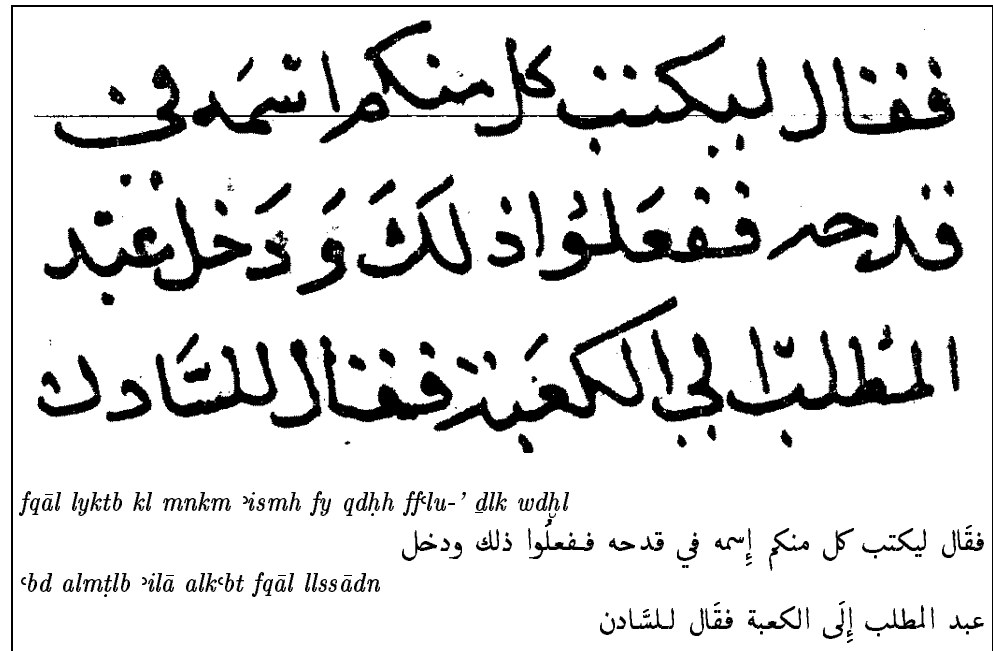 فقال ليكتب كل منكم اسمَه في
قدحه ففعَلُوا ذلكَ وَدَخل عبْد
المُطلب الي الكعَبة فقال للسَّادن
fqāl lyktb kl mnkm ʾismh fy qdḥh ffʿlu-’ ḏlk wdḫl
فقَال ليكتب كل منكم إِسمه في قدحه ففعلُوا ذلك ودخل
ʿbd almṭlb ʾilā alkʿbt fqāl llssādn
عبد المطلب إِلَى الكعبة فقَال للسَّادن